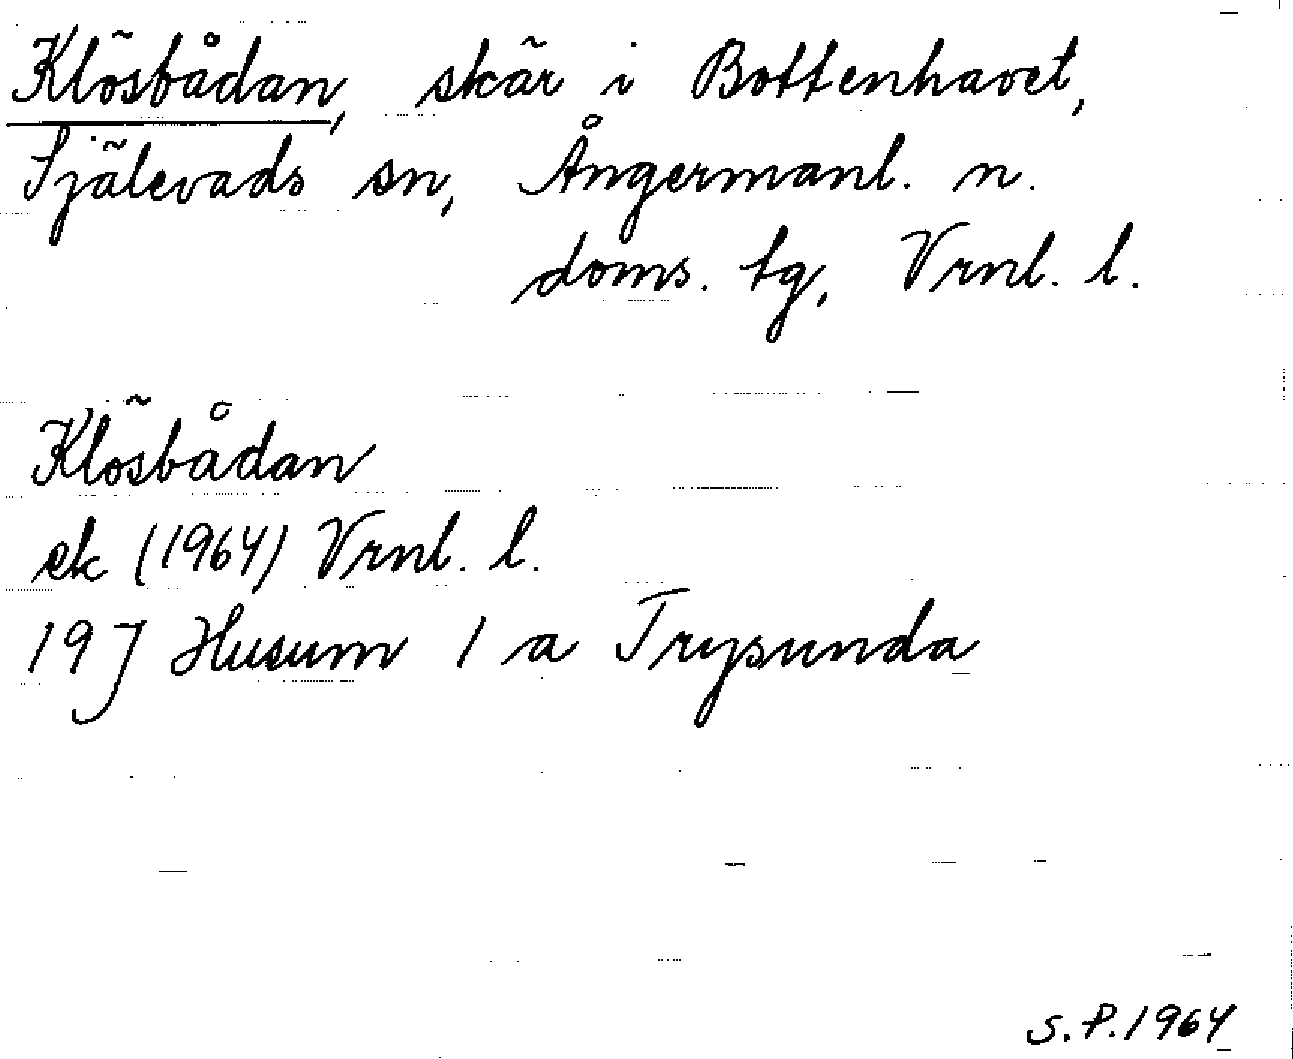 Klösbådan, skär i Bottenhavet,
Själevads sn, Ångermanl. n.
doms. tg, Vrnl. l.
Klösbådan
ek (1964) Vrnl. l.
19 J Husum 1 a Trysunda
S.P. 1964